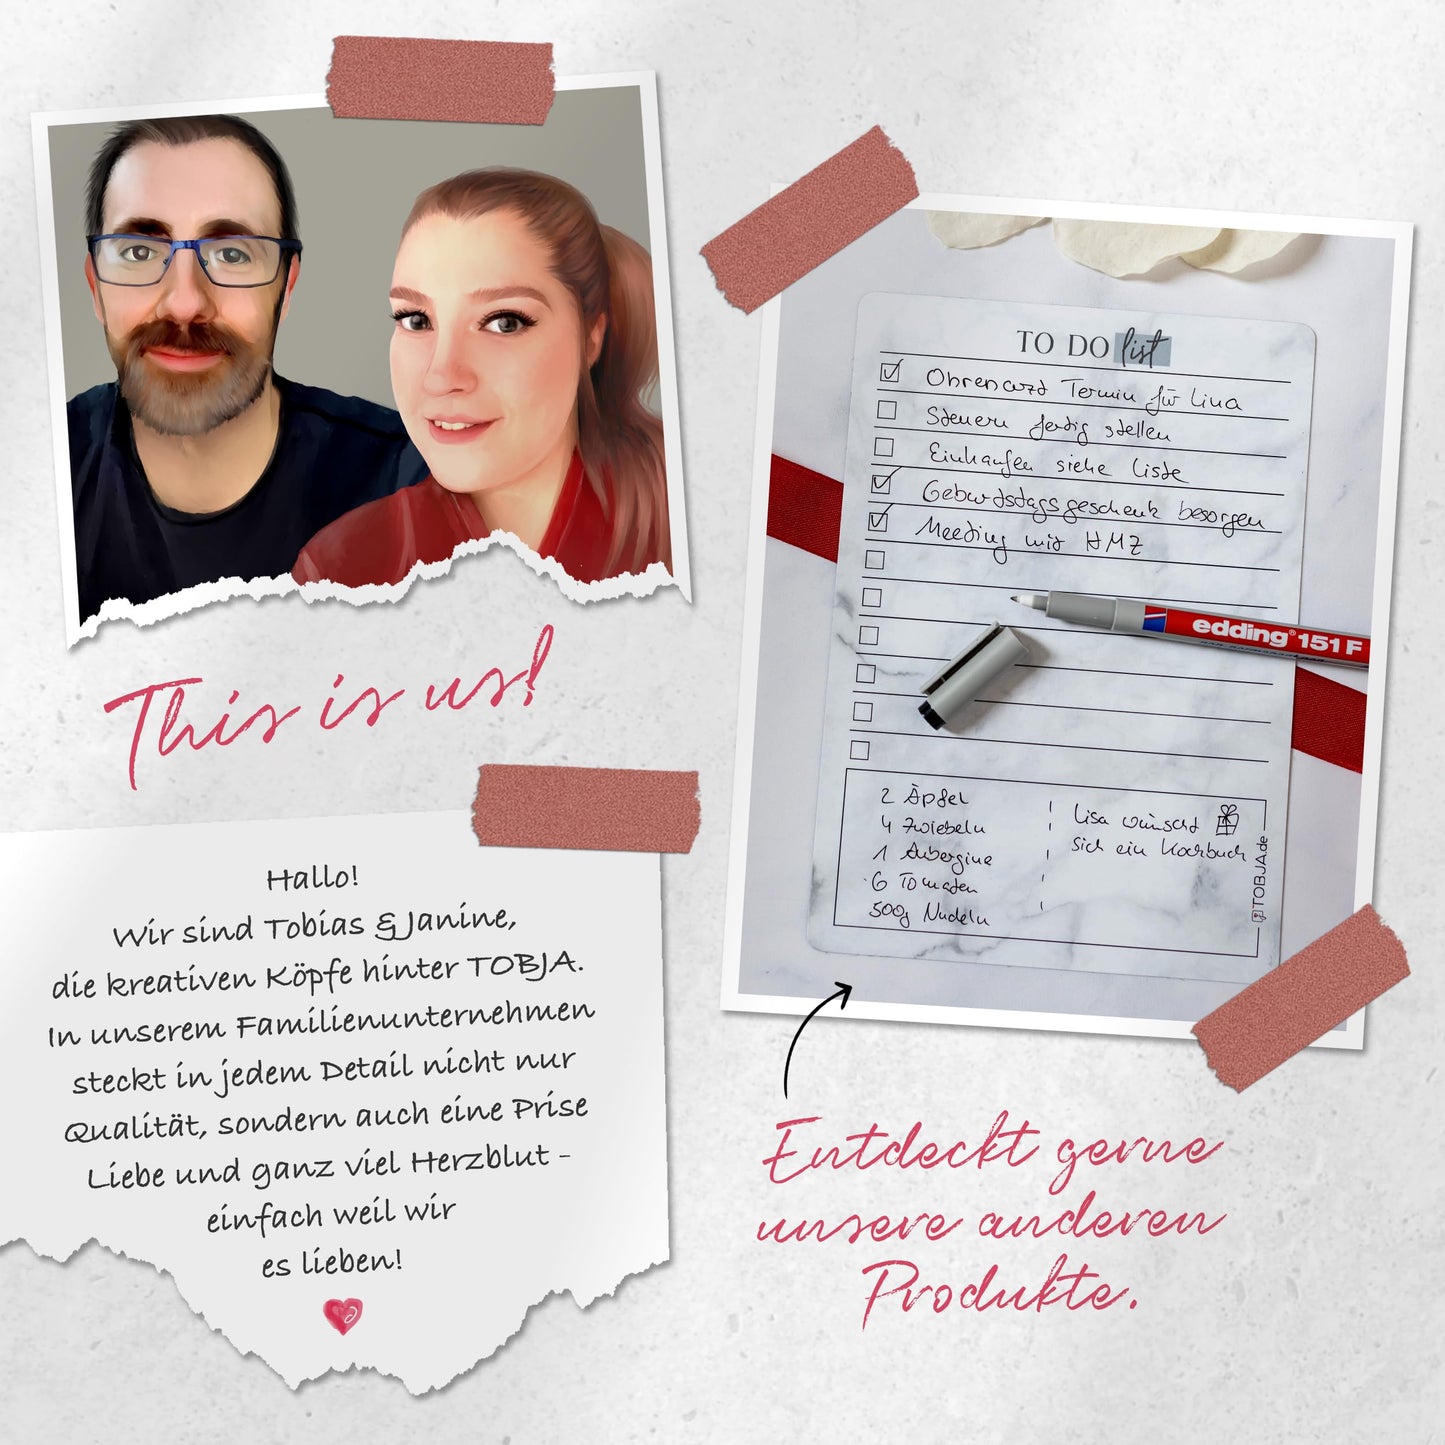 This is us!
Hallo!
Wir sind Tobias & Janine,
die kreativen Köpfe hinter TOBJA.
In unserem Familienunternehmen
steckt in jedem Detail nicht nur
Qualität, sondern auch eine Prise
Liebe und ganz viel Herzblut -
einfach weil wir
es lieben!
TO DO list
Ohrenarzt Termin für Lina
Steuern fertig stellen
Einkaufen siehe Liste
Geburtstagsgeschenk besorgen
Meeting mit HMZ
edding® 151 F
2 Äpfel
4 Zwiebeln
1 Aubergine
6 Tomaten
500g Nudeln
Lisa wünscht
sich ein Kochbuch
TOBJA.de
Entdeckt gerne
unsere anderen
Produkte.